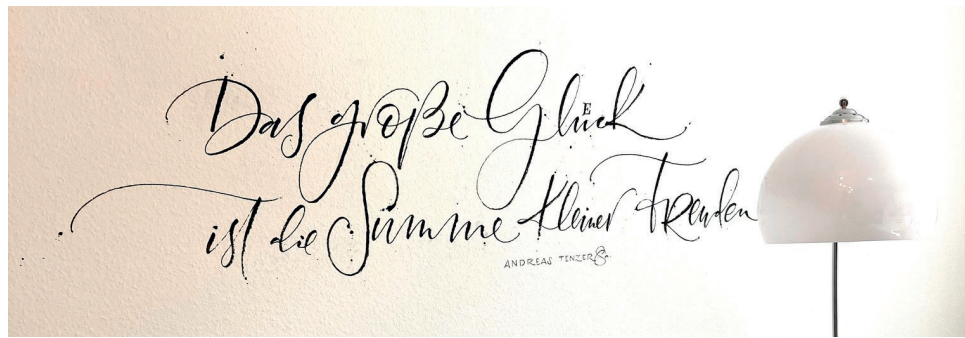 Das große Glück
ist die Summe kleiner Freuden
ANDREAS TENZER